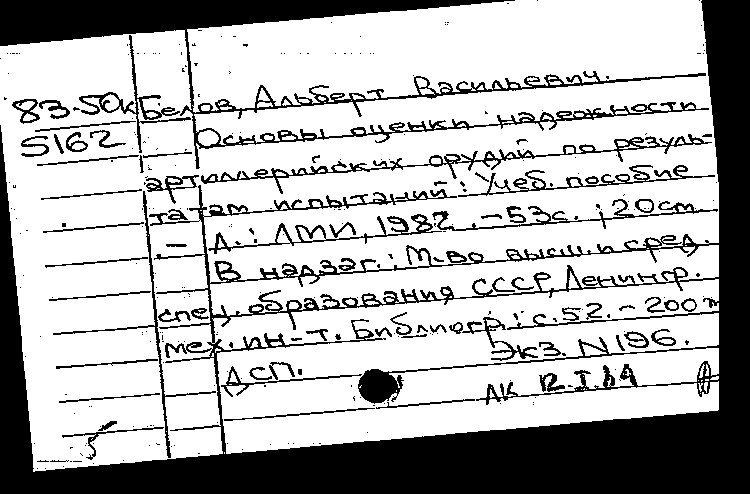 83-50к Белов, Альберт Васильевич.
5162 Основы оценки надежности
артиллерийских орудий по резуль-
татам испытаний: Учеб. пособие
.— Л.: ЛМИ, 1982 .—53с. ; 20см
В надзаг.: М-во высш. и сред.
спец. образования СССР, Ленингр.
мех. ин-т. Библиогр.: с.52. — 200
ДСП. Экз. N196.
АК 12.I.84
5